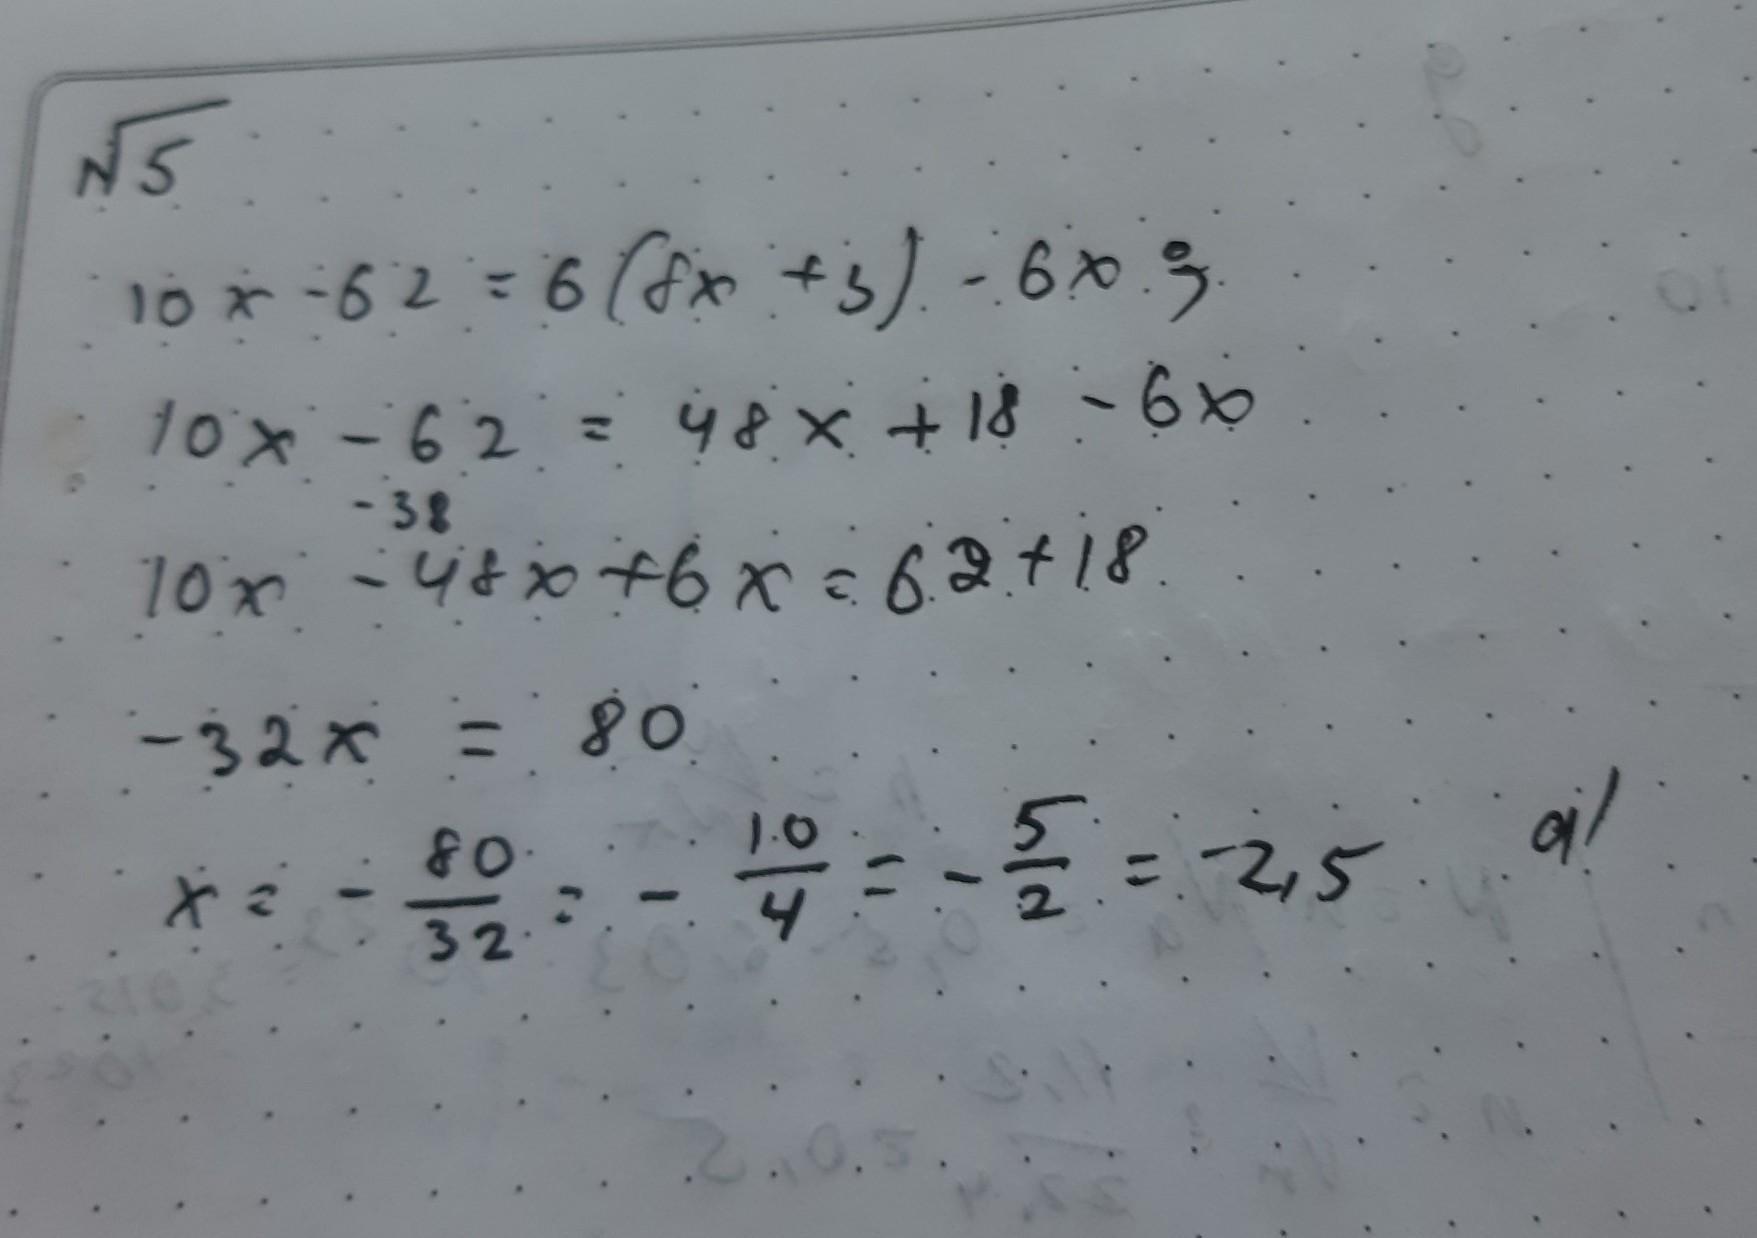 №5
10x - 62 = 6(8x + 3) - 6x;
10x - 62 = 48x + 18 - 6x
-38
10x - 48x + 6x = 62 + 18
-32x = 80
x = - 80/32 = - 10/4 = - 5/2 = -2,5 a/